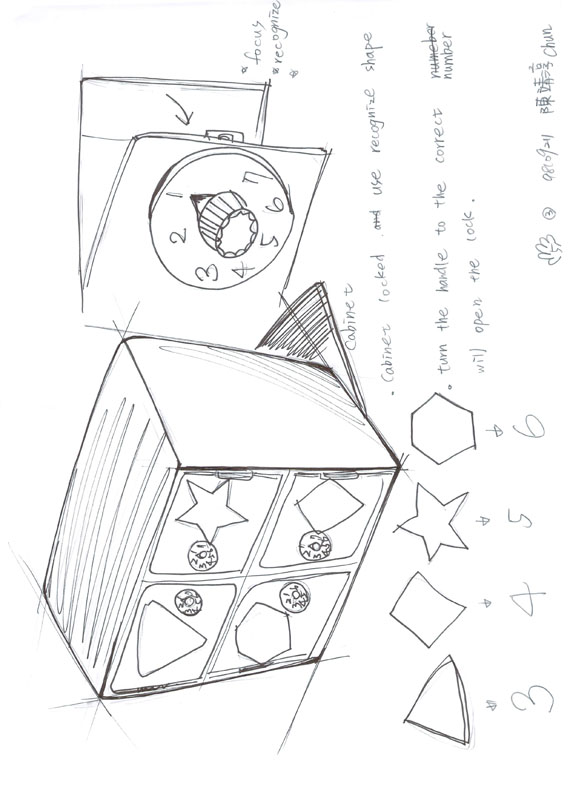 * focus
* recognize
*
1 2 3 4 5 6 7
Cabinet
· Cabinet locked and use recognize shape
· turn the handle to the correct numeber
number
will open the lock.
3 4 5 6
② Chun